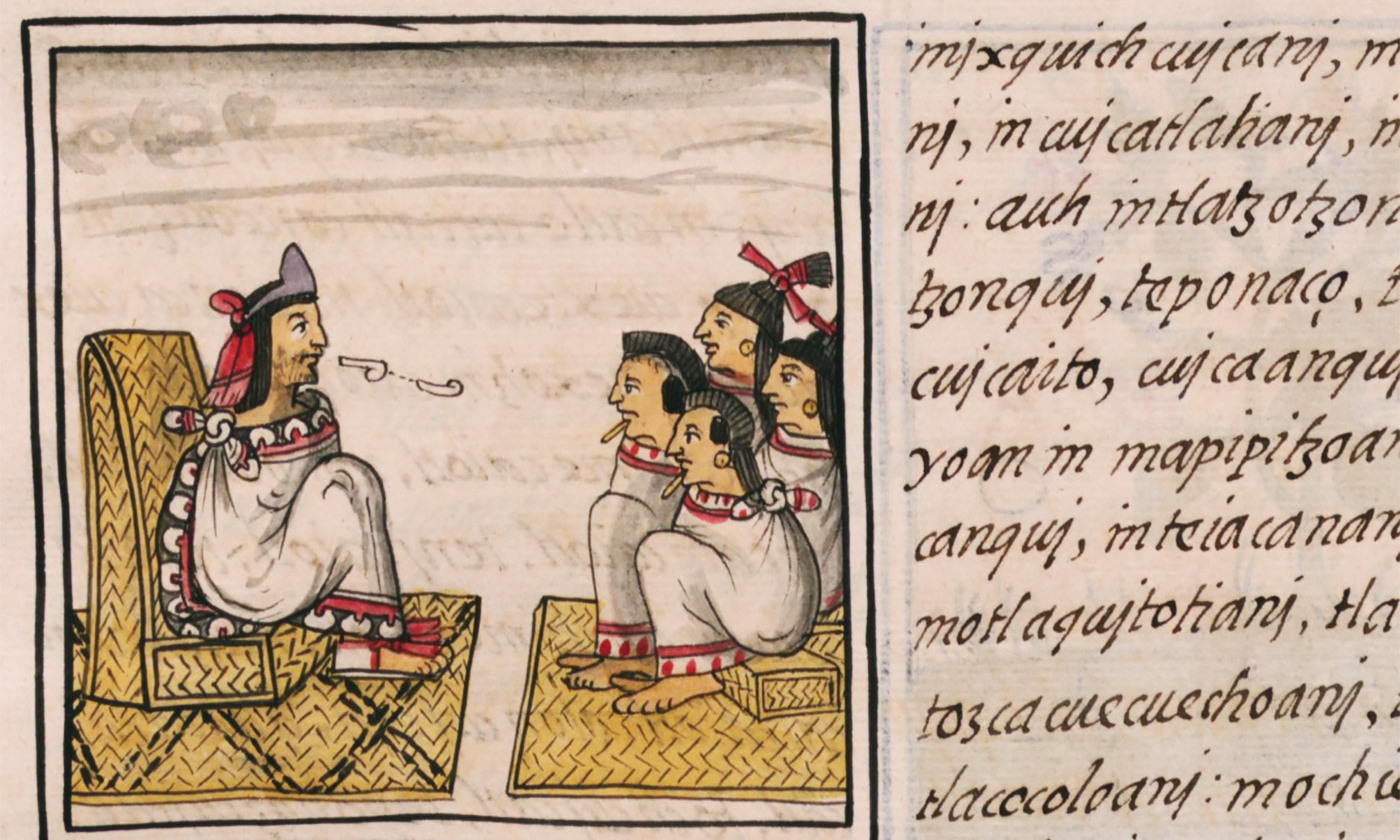 imjxquich cujcanj, m
nj, in cujcatlalianj, in
nj: auh intlatzotzon
tzonquj, teponaço, t
cujcaito, cujcaanquj
yoan in mapipitzoan
canquj, inteiacananj
motlaqujtotianj, tla
tozcacuecuechoanj,
tlacocoloanj: mochi